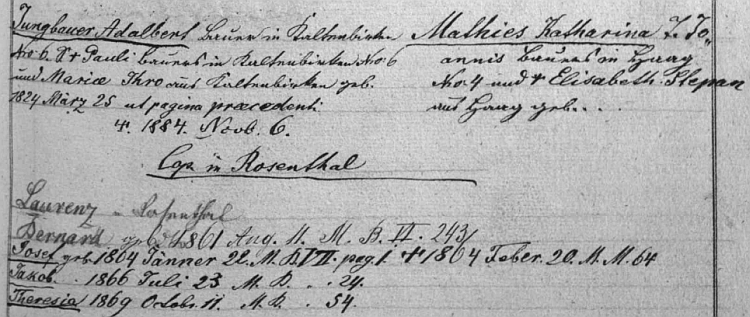 Jungbauer Adalbert Bauer in Kaltenbirken Mathies Katharina T. Jo„
No. 6. S. + Pauli Bauers in Kaltenbirken No. 6 annis Bauers in Haag
und Mariæ Ihro aus Kaltenbirken geb. No. 4 und + Elisabeth Stepan
1824 März 25 ut pagina præcedenti aus Haag geb..
+. 1884. Novb. 6.
Cop. in Rosenthal
Laurenz Rosenthal
Bernard 1861 Aug. 11. M. B. VI. 243
Josef geb. 1864 Jänner 22. M. B. VII. pag. 1. + 1864 Feber. 20. M. M. 64
Jakob. . 1866 Juli 23 M. B. . 24.
Theresia 1869 Octob. 11. M. B. . 54.